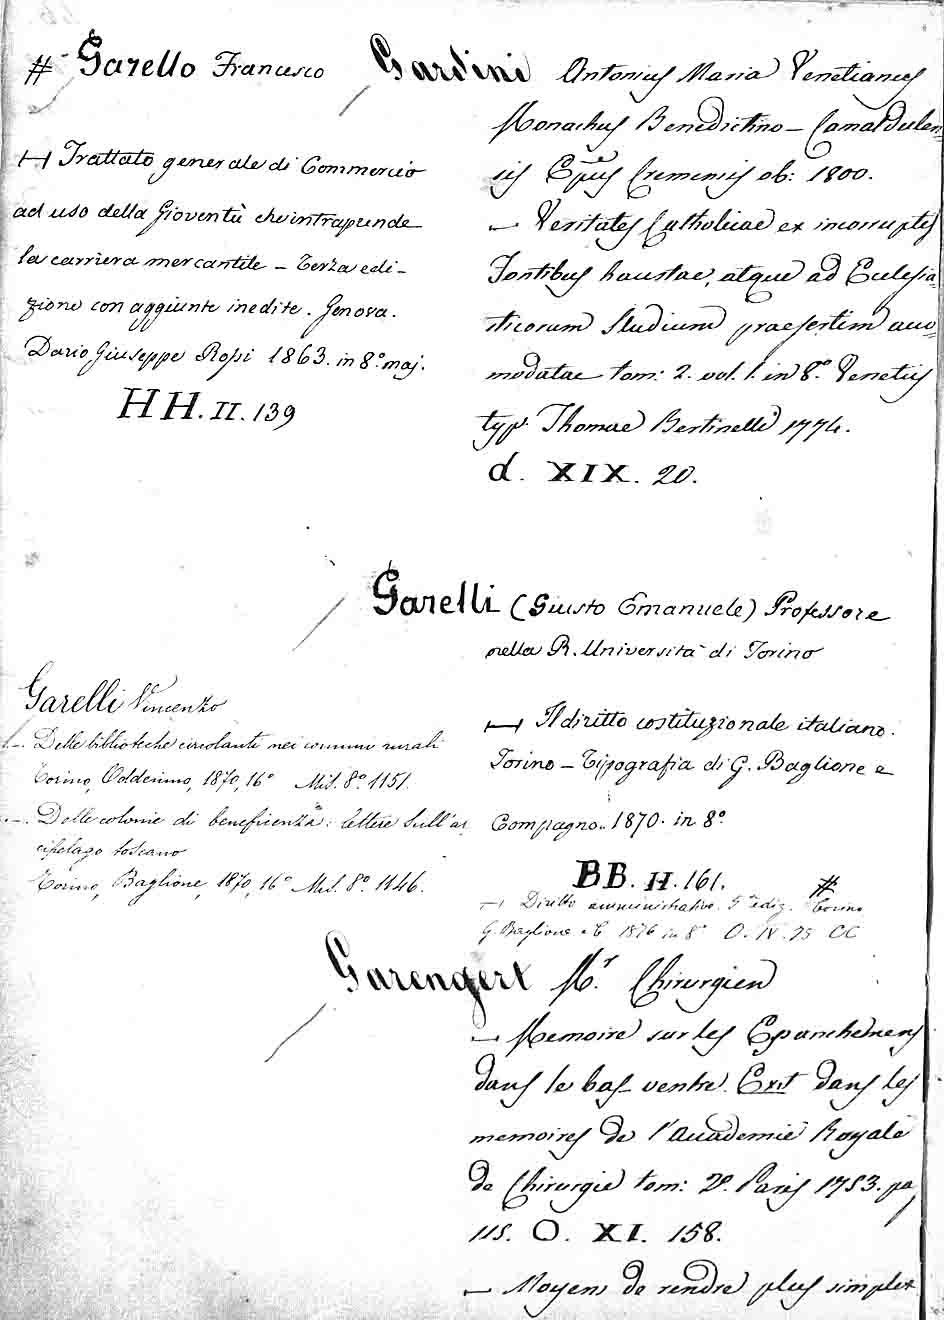 # Garello Francesco
Trattato generale di Commercio
ad uso della Gioventù che intraprende
la carriera mercantile – Terza edi-
zione con aggiunte inedite. Genova.
Dario Giuseppe Rossi 1863. in 8.° maj.
HH. II. 139
Garelli Vincenzo
– Delle biblioteche circolanti nei comuni rurali
Torino, 1870, 16° Mis. 8° 1151.
– Delle colonie di beneficenza: lettere sull'ar
cipelago toscano
Torino, Baglione, 1870, 16° Mis. 8° 1146.
Gardini Antonius Maria Venetianus
Monachus Benedictino – Camaldulen=
sis Epus Cremensis ob: 1800.
– Veritates Catholicae ex incorruptis
Fontibus haustae, atque ad Ecclesia=
sticorum Studium praesertim acco=
modatae tom: 2. vol. 1. in 8.° Venetiis
typ. Thomae Bettinelli 1774.
d. XIX. 20.
Garelli (Giusto Emanuele) Professore
nella R. Università di Torino
Il diritto costituzionale italiano.
Torino – Tipografia di G. Baglione e
Compagno. 1870. in 8°
BB. H. 161.
Diritto amministrativo. 5ª ediz. # Torino
G. Baglione e C 1876 in 8° O. IV. 25 CC
Garengert M.r Chirurgien
– Memoire sur les Epanchemens
dans le bas-ventre. Exit dans les
memoires de l'Academie Royale
de Chirurgie tom: 2.° Paris 1753. pa
115. O. XI. 158.
– Moyens de rendre plus simple